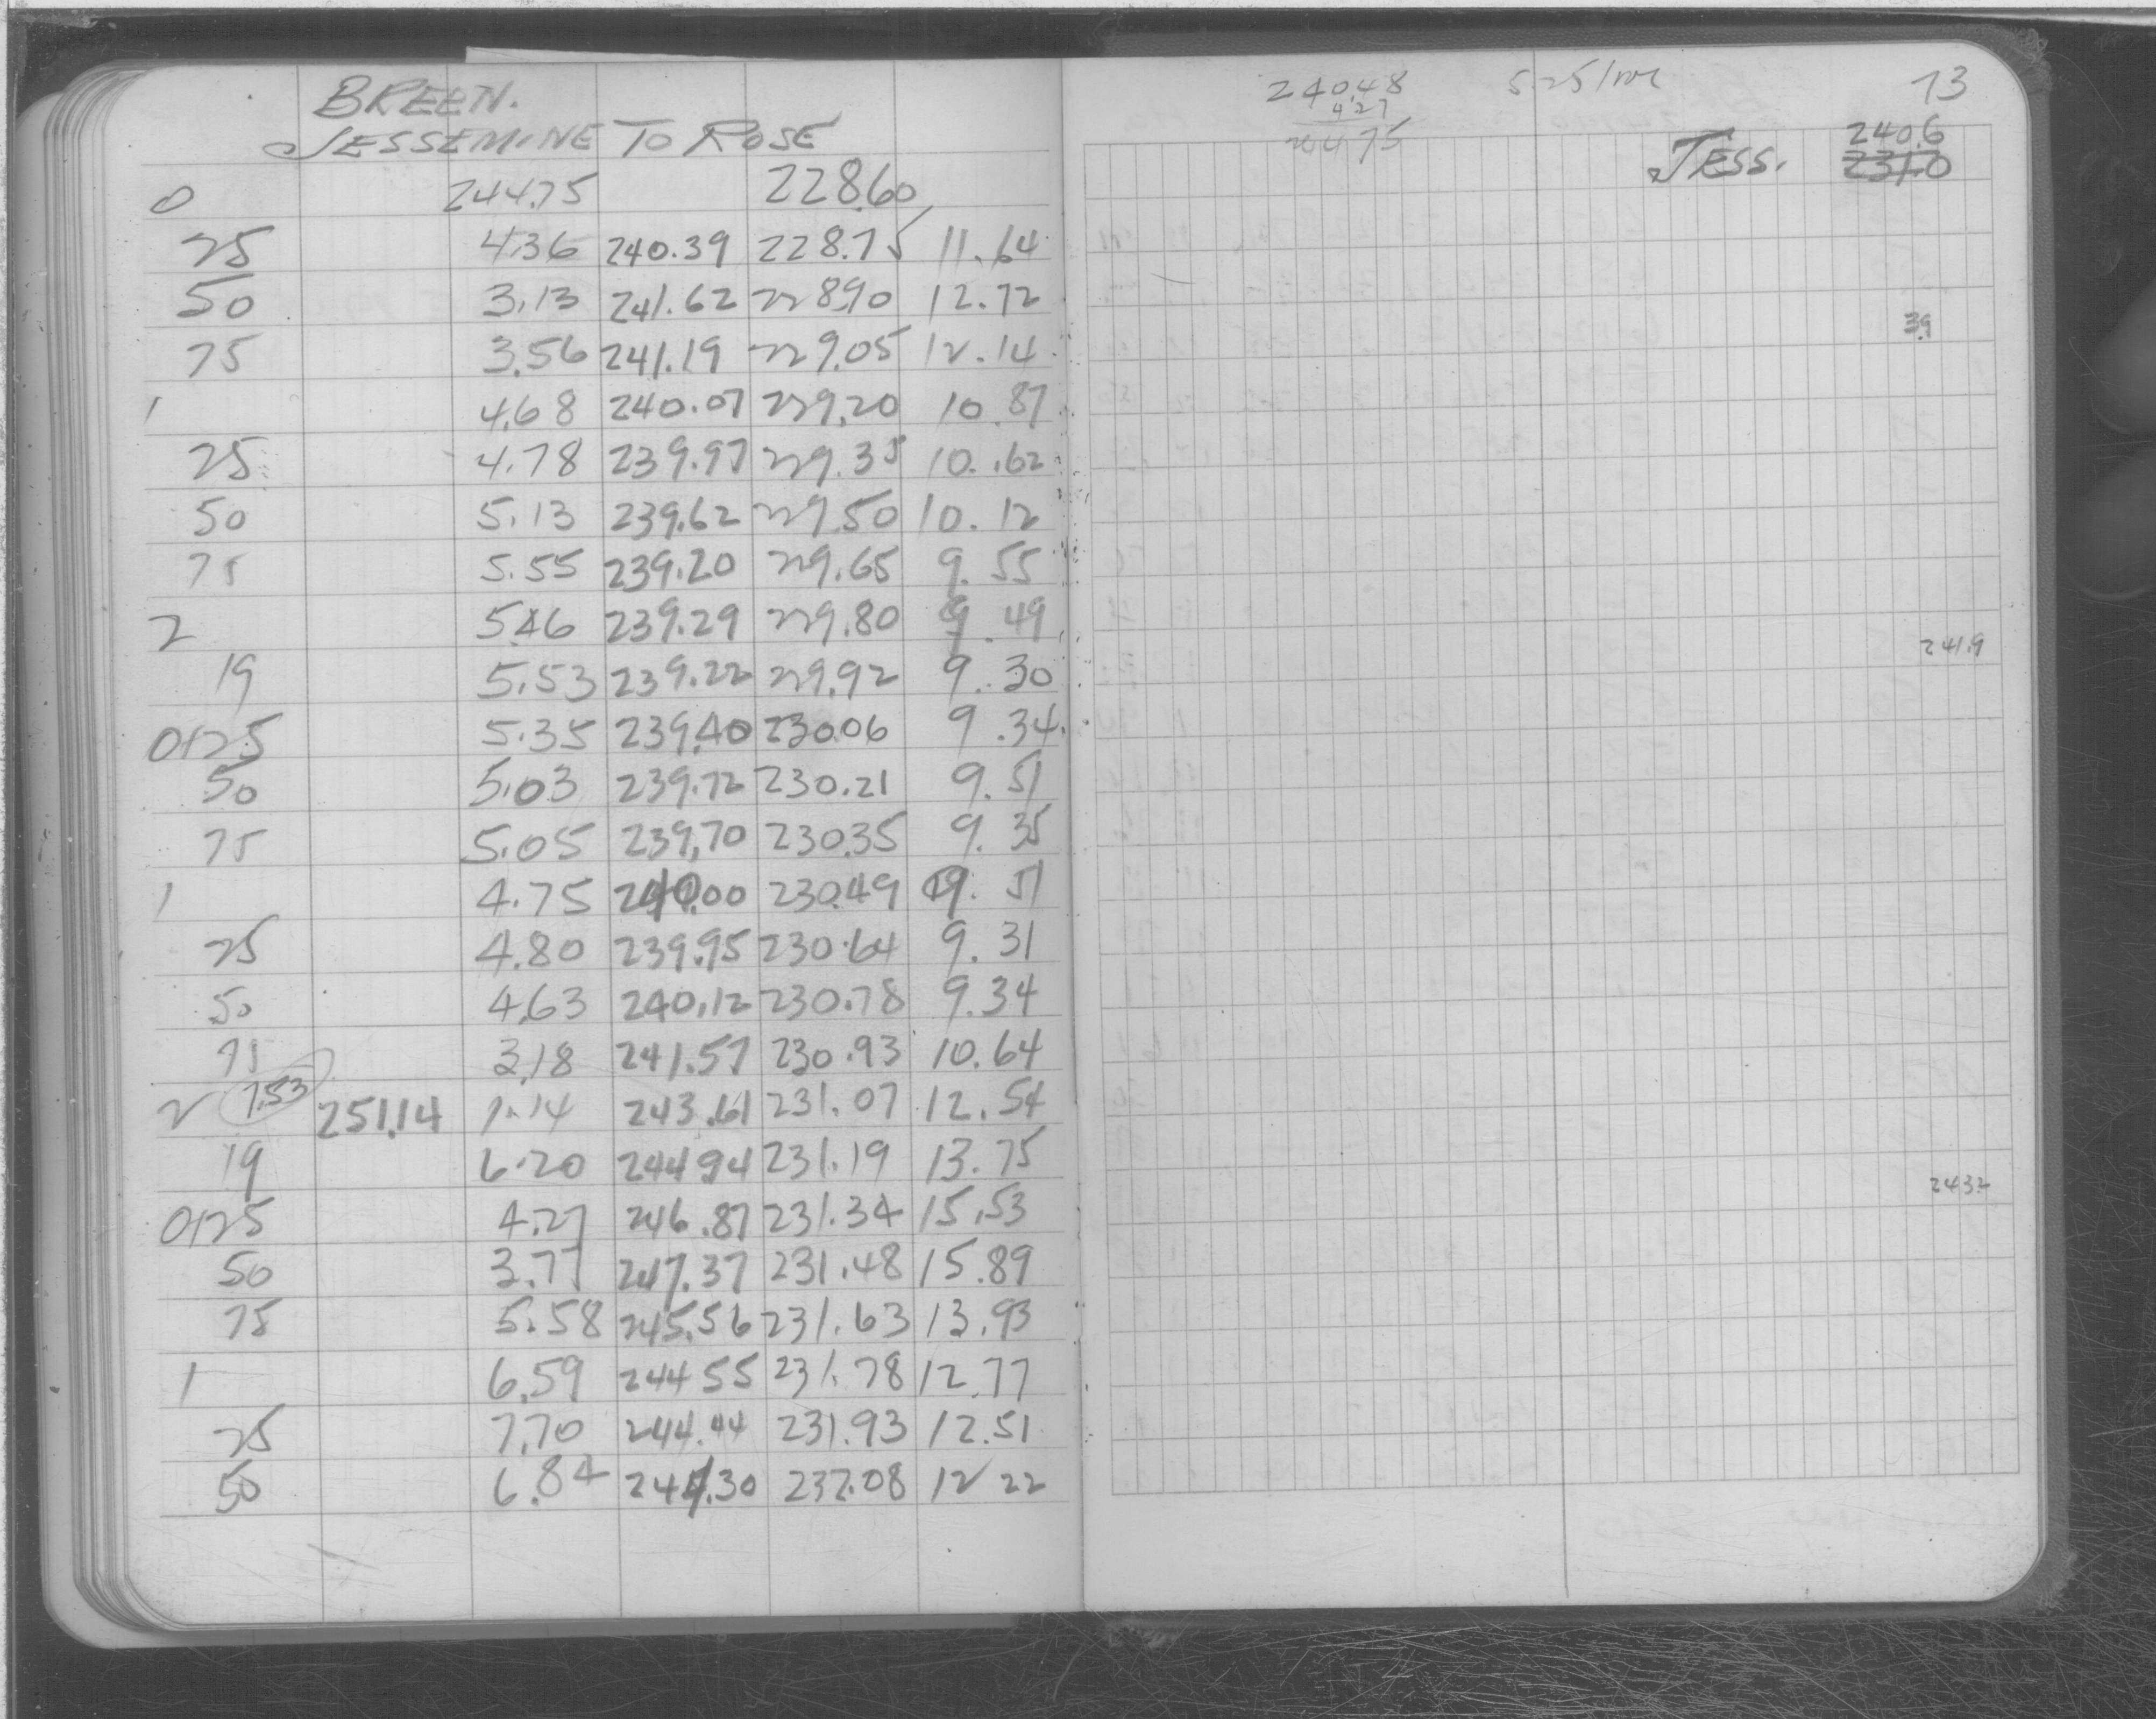 BREEN.
JESSEMINE TO ROSE
0 244.75 228.60
25 4.36 240.39 228.75 11.64
50 3.13 241.62 228.90 12.72
75 3.56 241.19 229.05 12.14
1 4.68 240.07 229.20 10.87
25 4.78 239.97 229.35 10.62
50 5.13 239.62 229.50 10.12
75 5.55 239.20 229.65 9.55
2 5.46 239.29 229.80 9.49
19 5.53 239.22 229.92 9.30
0+25 5.35 239.40 230.06 9.34
50 5.03 239.72 230.21 9.51
75 5.05 239.70 230.35 9.35
1 4.75 240.00 230.49 9.51
25 4.80 239.95 230.64 9.31
50 4.63 240.12 230.78 9.34
75 3.18 241.57 230.93 10.64
2 7.53 251.14 1.14 243.61 231.07 12.54
19 6.20 244.94 231.19 13.75
0+25 4.27 246.87 231.34 15.53
50 3.77 247.37 231.48 15.89
75 5.58 245.56 231.63 13.93
1 6.59 244.55 231.78 12.77
25 7.70 244.44 231.93 12.51
50 6.84 244.30 232.08 12 22
240.48 73
4.27
244.75
240.6
Jess. 231.0
39
241.9
243.2